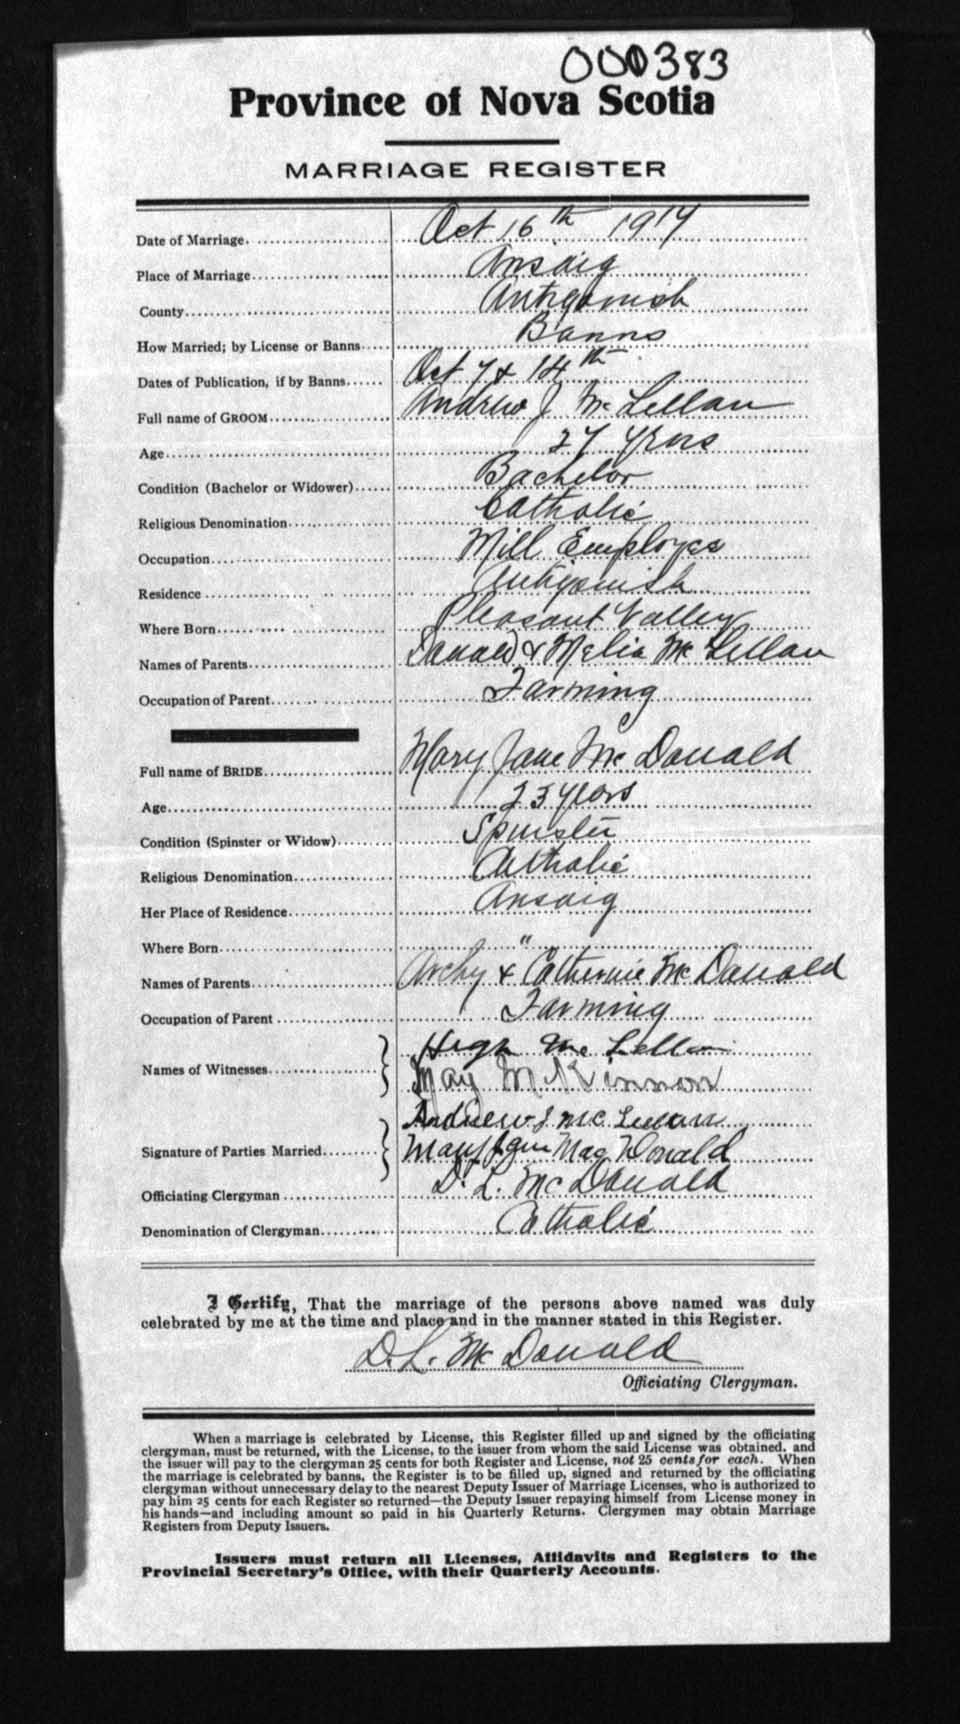 000383
Province of Nova Scotia
MARRIAGE REGISTER
Date of Marriage Oct 16th 1917
Place of Marriage Arisaig
County Antigonish
How Married; by License or Banns Banns
Dates of Publication, if by Banns Oct 7 & 14th
Full name of GROOM Andrew J McLellan
Age 27 years
Condition (Bachelor or Widower) Bachelor
Religious Denomination Catholic
Occupation Mill Employee
Residence Antigonish
Where Born Pleasant Valley
Names of Parents Donald & Melia McLellan
Occupation of Parent Farming
Full name of BRIDE Mary Jane McDonald
Age 23 years
Condition (Spinster or Widow) Spinster
Religious Denomination Catholic
Her Place of Residence Arisaig
Where Born "
Names of Parents Archy & Catherine McDonald
Occupation of Parent Farming
Names of Witnesses Hugh McLellan
May McKinnon
Andrew J McLellan
Signature of Parties Married Mary Jane MacDonald
Officiating Clergyman D. L. McDonald
Denomination of Clergyman Catholic
I Certify, That the marriage of the persons above named was duly
celebrated by me at the time and place and in the manner stated in this Register.
D. L. McDonald
Officiating Clergyman.
When a marriage is celebrated by License, this Register filled up and signed by the officiating
clergyman, must be returned, with the License, to the issuer from whom the said License was obtained, and
the issuer will pay to the clergyman 25 cents for both Register and License, not 25 cents for each. When
the marriage is celebrated by banns, the Register is to be filled up, signed and returned by the officiating
clergyman without unnecessary delay to the nearest Deputy Issuer of Marriage Licenses, who is authorized to
pay him 25 cents for each Register so returned—the Deputy Issuer repaying himself from License money in
his hands—and including amount so paid in his Quarterly Returns. Clergymen may obtain Marriage
Registers from Deputy Issuers.
Issuers must return all Licenses, Affidavits and Registers to the
Provincial Secretary's Office, with their Quarterly Accounts.